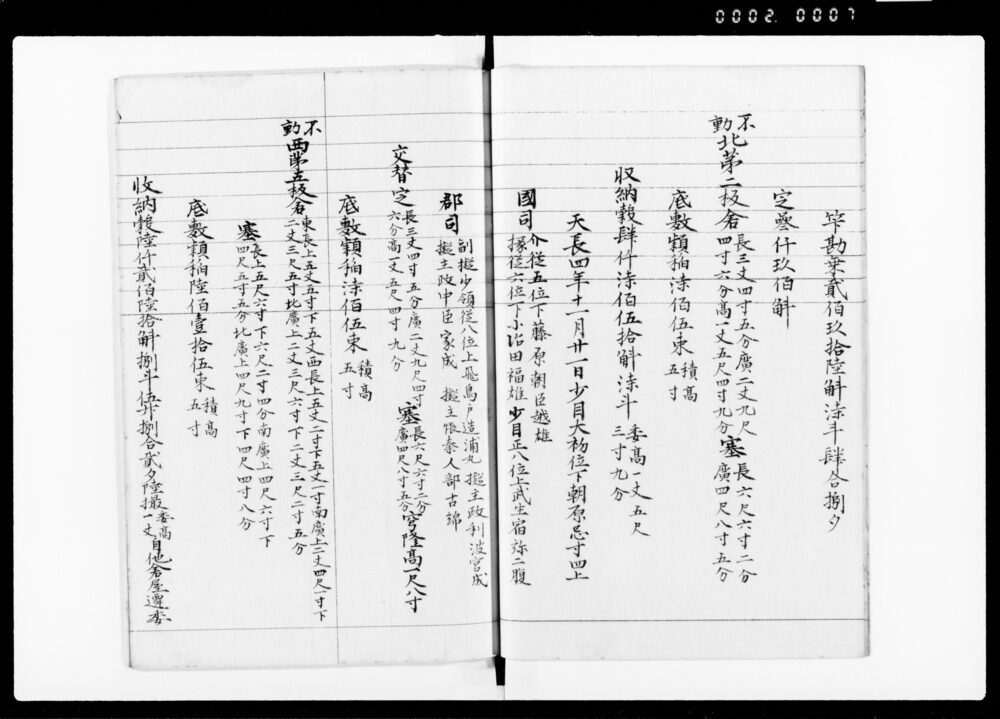 0002. 0007
竿勘乗貳佰玖拾陸斛漆斗肆合捌夕
定叄仟玖佰斛
不動北第二板倉 長三丈四寸五分廣二丈九尺
四寸六分高一丈五尺四寸九分 塞 長六尺六寸二分
廣四尺八寸五分
底敷穎稲漆佰伍束 積高
五寸
収納穀肆仟漆佰伍拾斛漆斗 委高一丈五尺
三寸九分
天長四年十一月廿一日少目大初位下朝原忌寸四上
國司 介従五位下藤原朝臣越雄
掾従六位下小治田福雄 少目正八位上武生宿祢二腹
郡司 副擬少領従八位上飛鳥戸造浦丸 擬主政利波宮成
擬主政中臣家成 擬主帳秦人部古綿
交替定 長三丈四寸五分廣二丈九尺四寸
六分高一丈五尺四寸九分 塞 長六尺六寸二分
廣四尺八寸五分 穹隆高一尺八寸
底敷穎稲漆佰伍束 積高
五寸
不動西第五板倉 東長上五丈五寸下五丈西長上五丈二寸下五丈一寸南廣上二丈四尺一寸下
二丈三尺五寸北廣上二丈三尺六寸下二丈三尺二寸五分
塞 長上五尺六寸下六尺二寸四分南廣上四尺六寸下
四尺五寸五分北廣上四尺九寸下四尺四寸八分
底敷穎稲陸佰壹拾伍束 積高
五寸
收納穀陸仟貳佰陸拾斛捌斗伍升捌合貳夕陸撮 委高
一丈 自他倉屋遷委